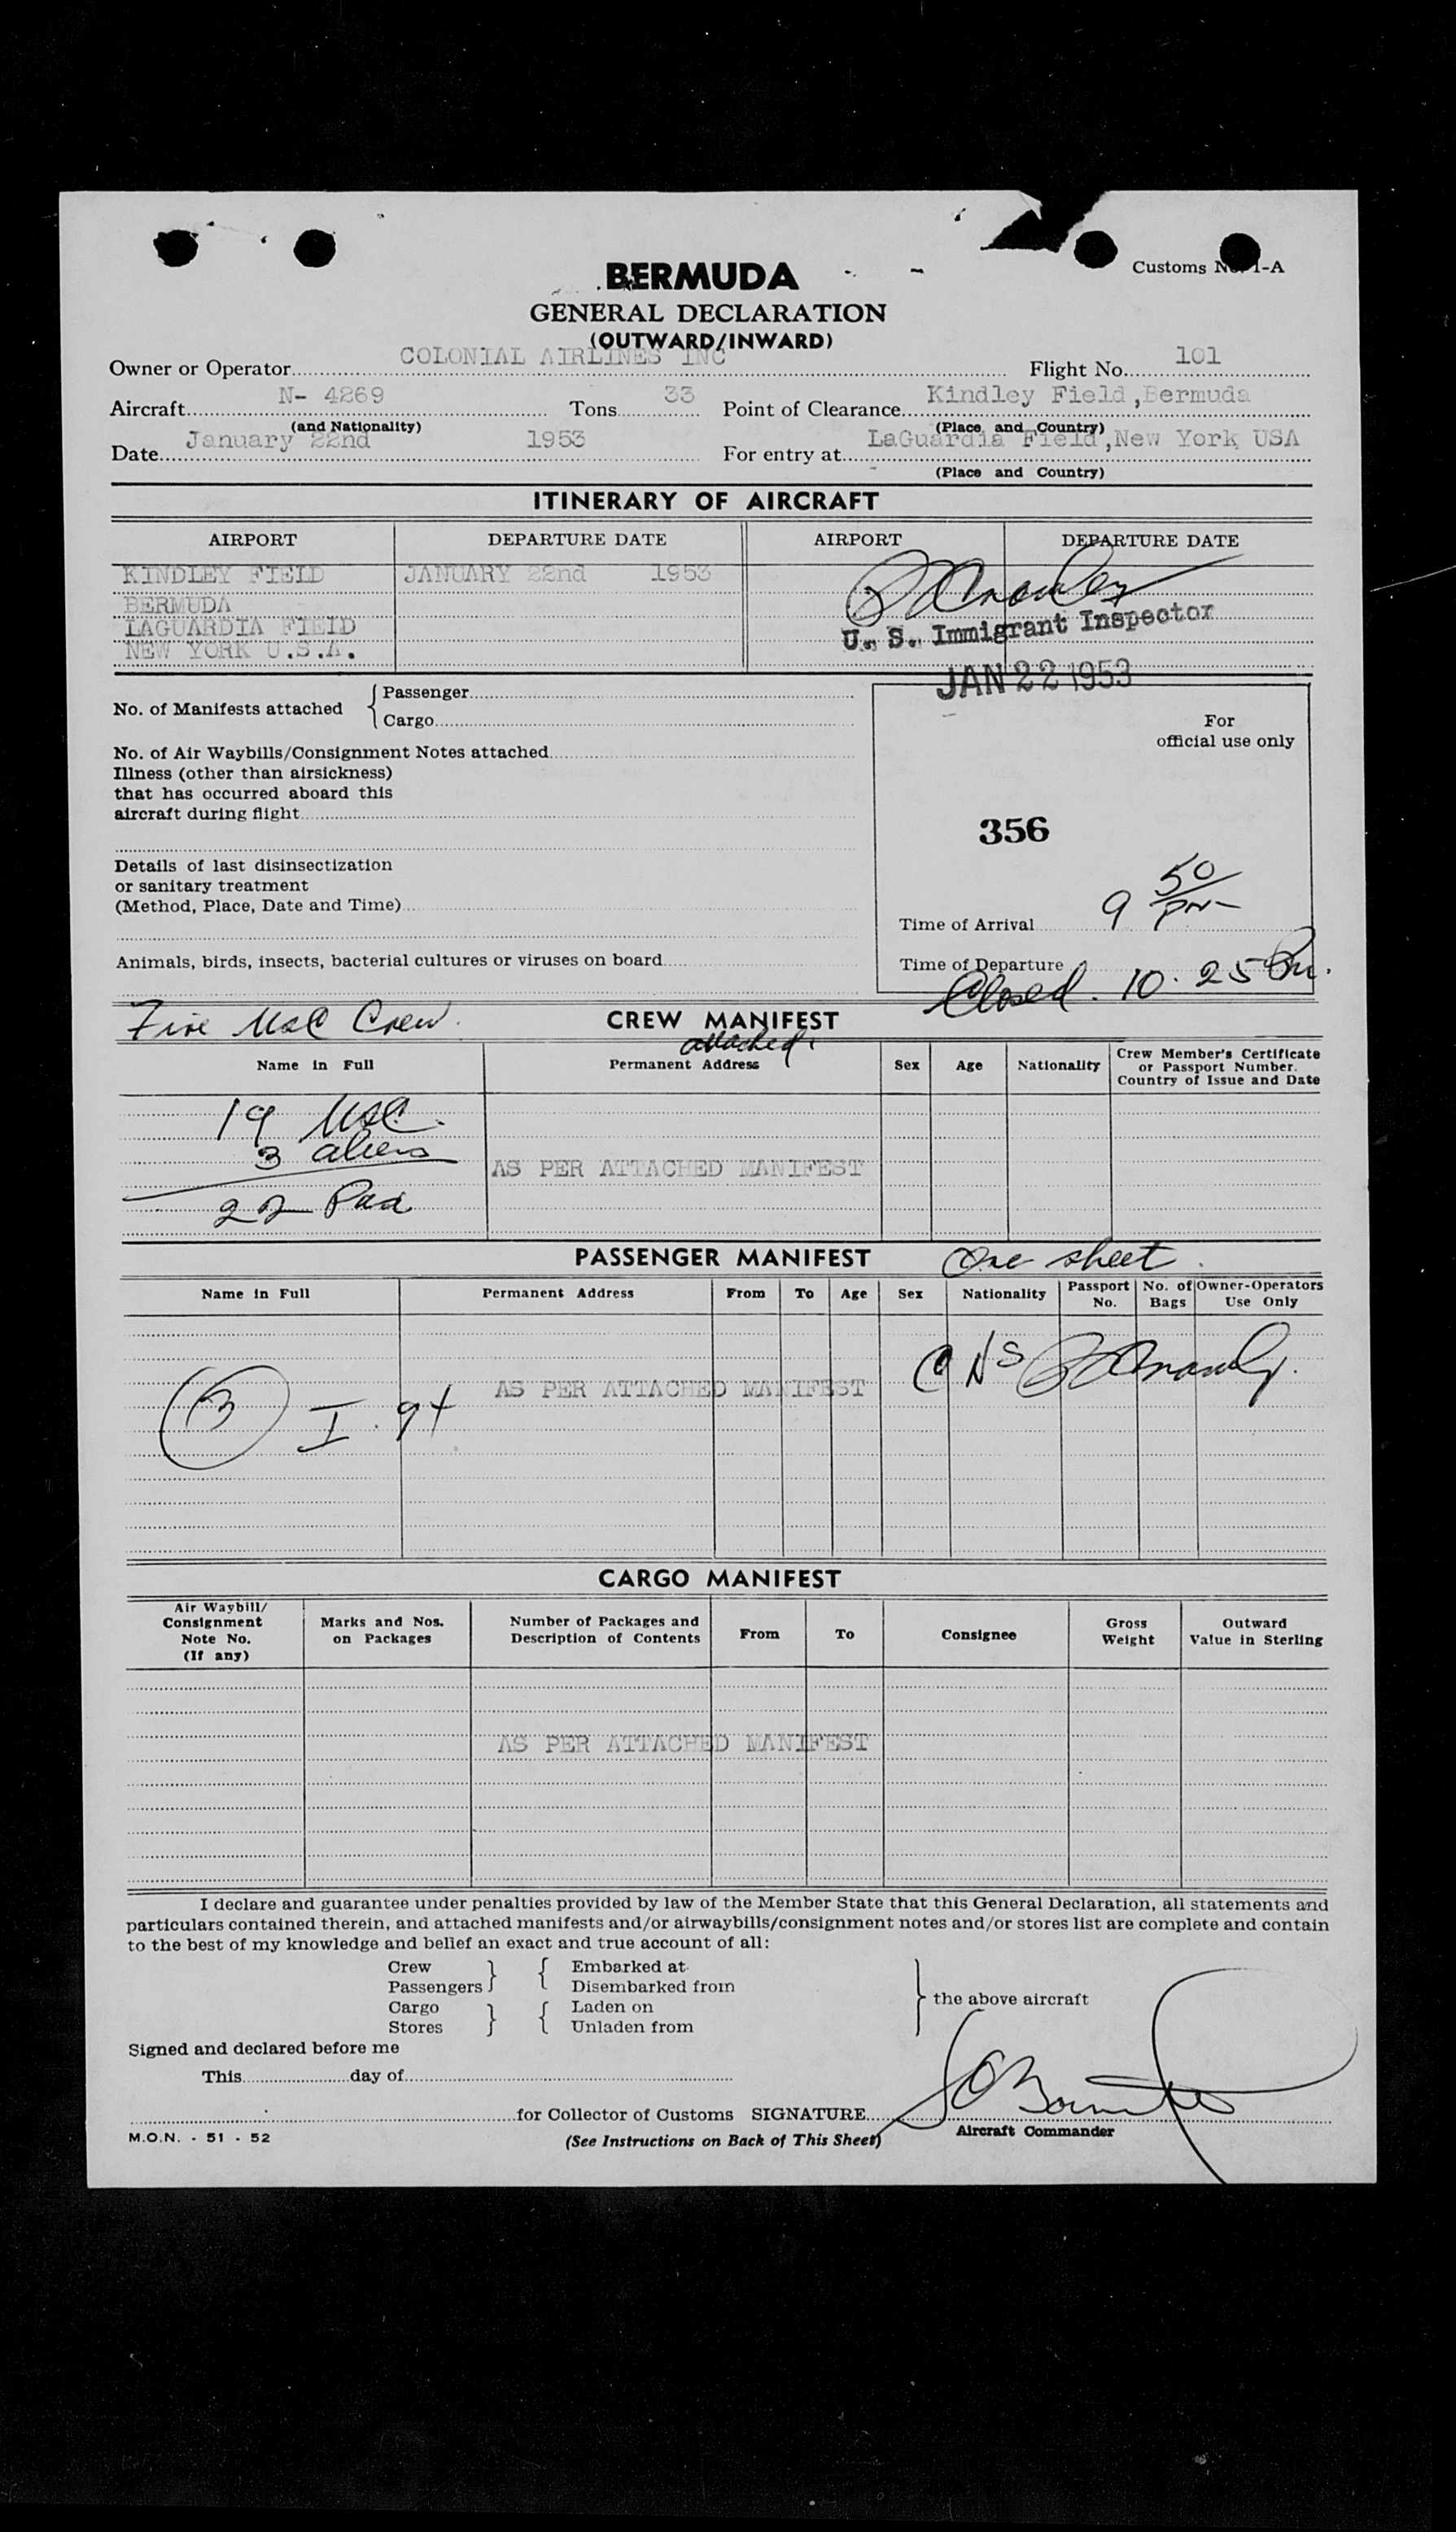 Customs No. 1-A
BERMUDA
GENERAL DECLARATION
(OUTWARD/INWARD)
Owner or Operator COLONIAL AIRLINES INC Flight No. 101
Aircraft N- 4269 Tons 33 Point of Clearance Kindley Field, Bermuda
(and Nationality) (Place and Country)
Date January 22nd 1953 For entry at LaGuardia Field, New York USA
(Place and Country)
ITINERARY OF AIRCRAFT
AIRPORT DEPARTURE DATE AIRPORT DEPARTURE DATE
KINDLEY FIELD JANUARY 22nd 1953
BERMUDA
LAGUARDIA FIELD
NEW YORK U.S.A.
U. S. Immigrant Inspector
JAN 22 1953
No. of Manifests attached { Passenger
Cargo
No. of Air Waybills/Consignment Notes attached
Illness (other than airsickness)
that has occurred aboard this
aircraft during flight
Details of last disinsectization
or sanitary treatment
(Method, Place, Date and Time)
Animals, birds, insects, bacterial cultures or viruses on board
For
official use only
356
Time of Arrival 9 50 pm
Time of Departure
Closed. 10.25 Pm.
Five USC Crew. CREW MANIFEST
attached.
Name in Full Permanent Address Sex Age Nationality Crew Member's Certificate
or Passport Number.
Country of Issue and Date
19 USC.
3 aliens
AS PER ATTACHED MANIFEST
22 Pax
PASSENGER MANIFEST One sheet.
Name in Full Permanent Address From To Age Sex Nationality Passport No. No. of Bags Owner-Operators Use Only
AS PER ATTACHED MANIFEST
(3) I. 94
CARGO MANIFEST
Air Waybill/
Consignment
Note No.
(If any)
Marks and Nos.
on Packages
Number of Packages and
Description of Contents
From To Consignee
Gross
Weight
Outward
Value in Sterling
AS PER ATTACHED MANIFEST
I declare and guarantee under penalties provided by law of the Member State that this General Declaration, all statements and
particulars contained therein, and attached manifests and/or airwaybills/consignment notes and/or stores list are complete and contain
to the best of my knowledge and belief an exact and true account of all:
Crew } { Embarked at
Passengers Disembarked from
the above aircraft
Cargo } { Laden on
Stores Unladen from
Signed and declared before me
This day of
for Collector of Customs SIGNATURE
Aircraft Commander
M.O.N. - 51 - 52
(See Instructions on Back of This Sheet)